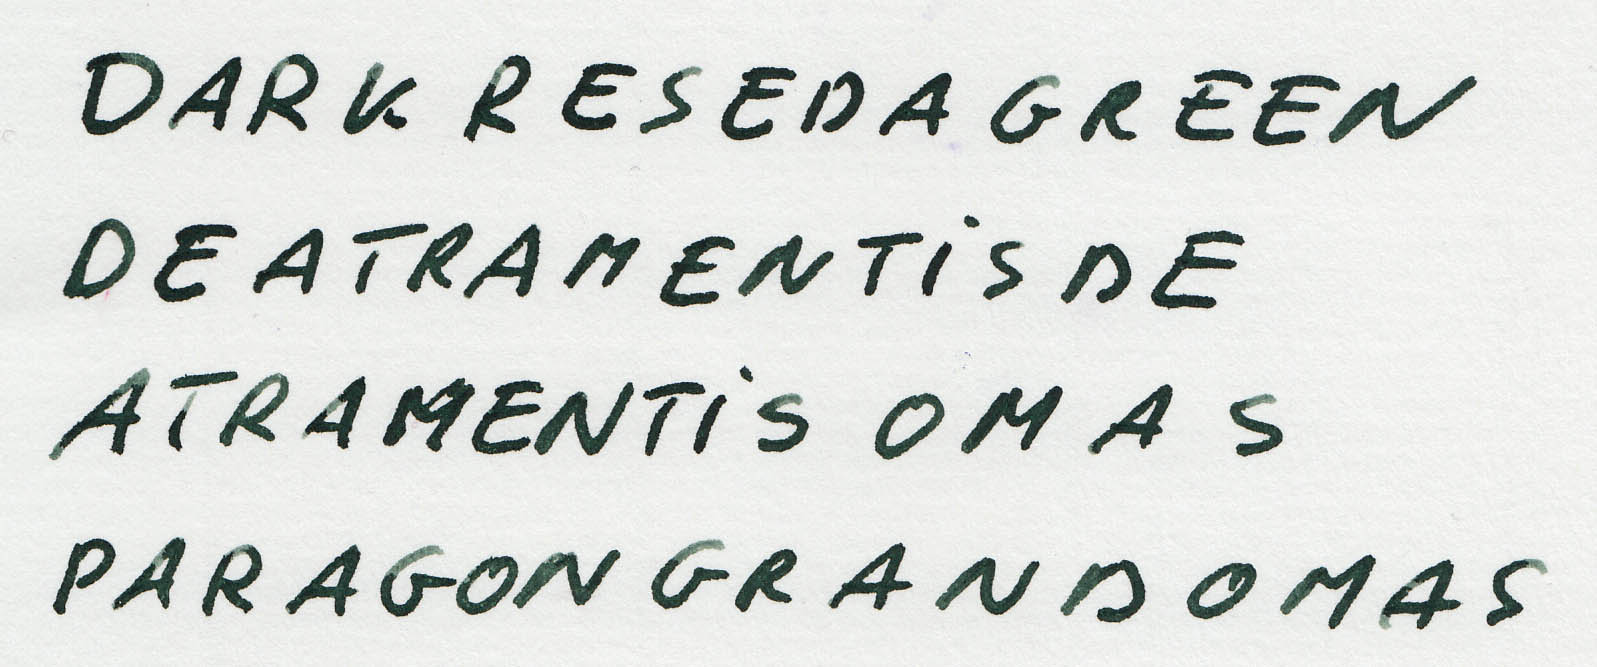 DARK RESEDA GREEN
DE ATRAMENTiS DE
ATRAMENTiS OMAS
PARAGON GRAND OMAS